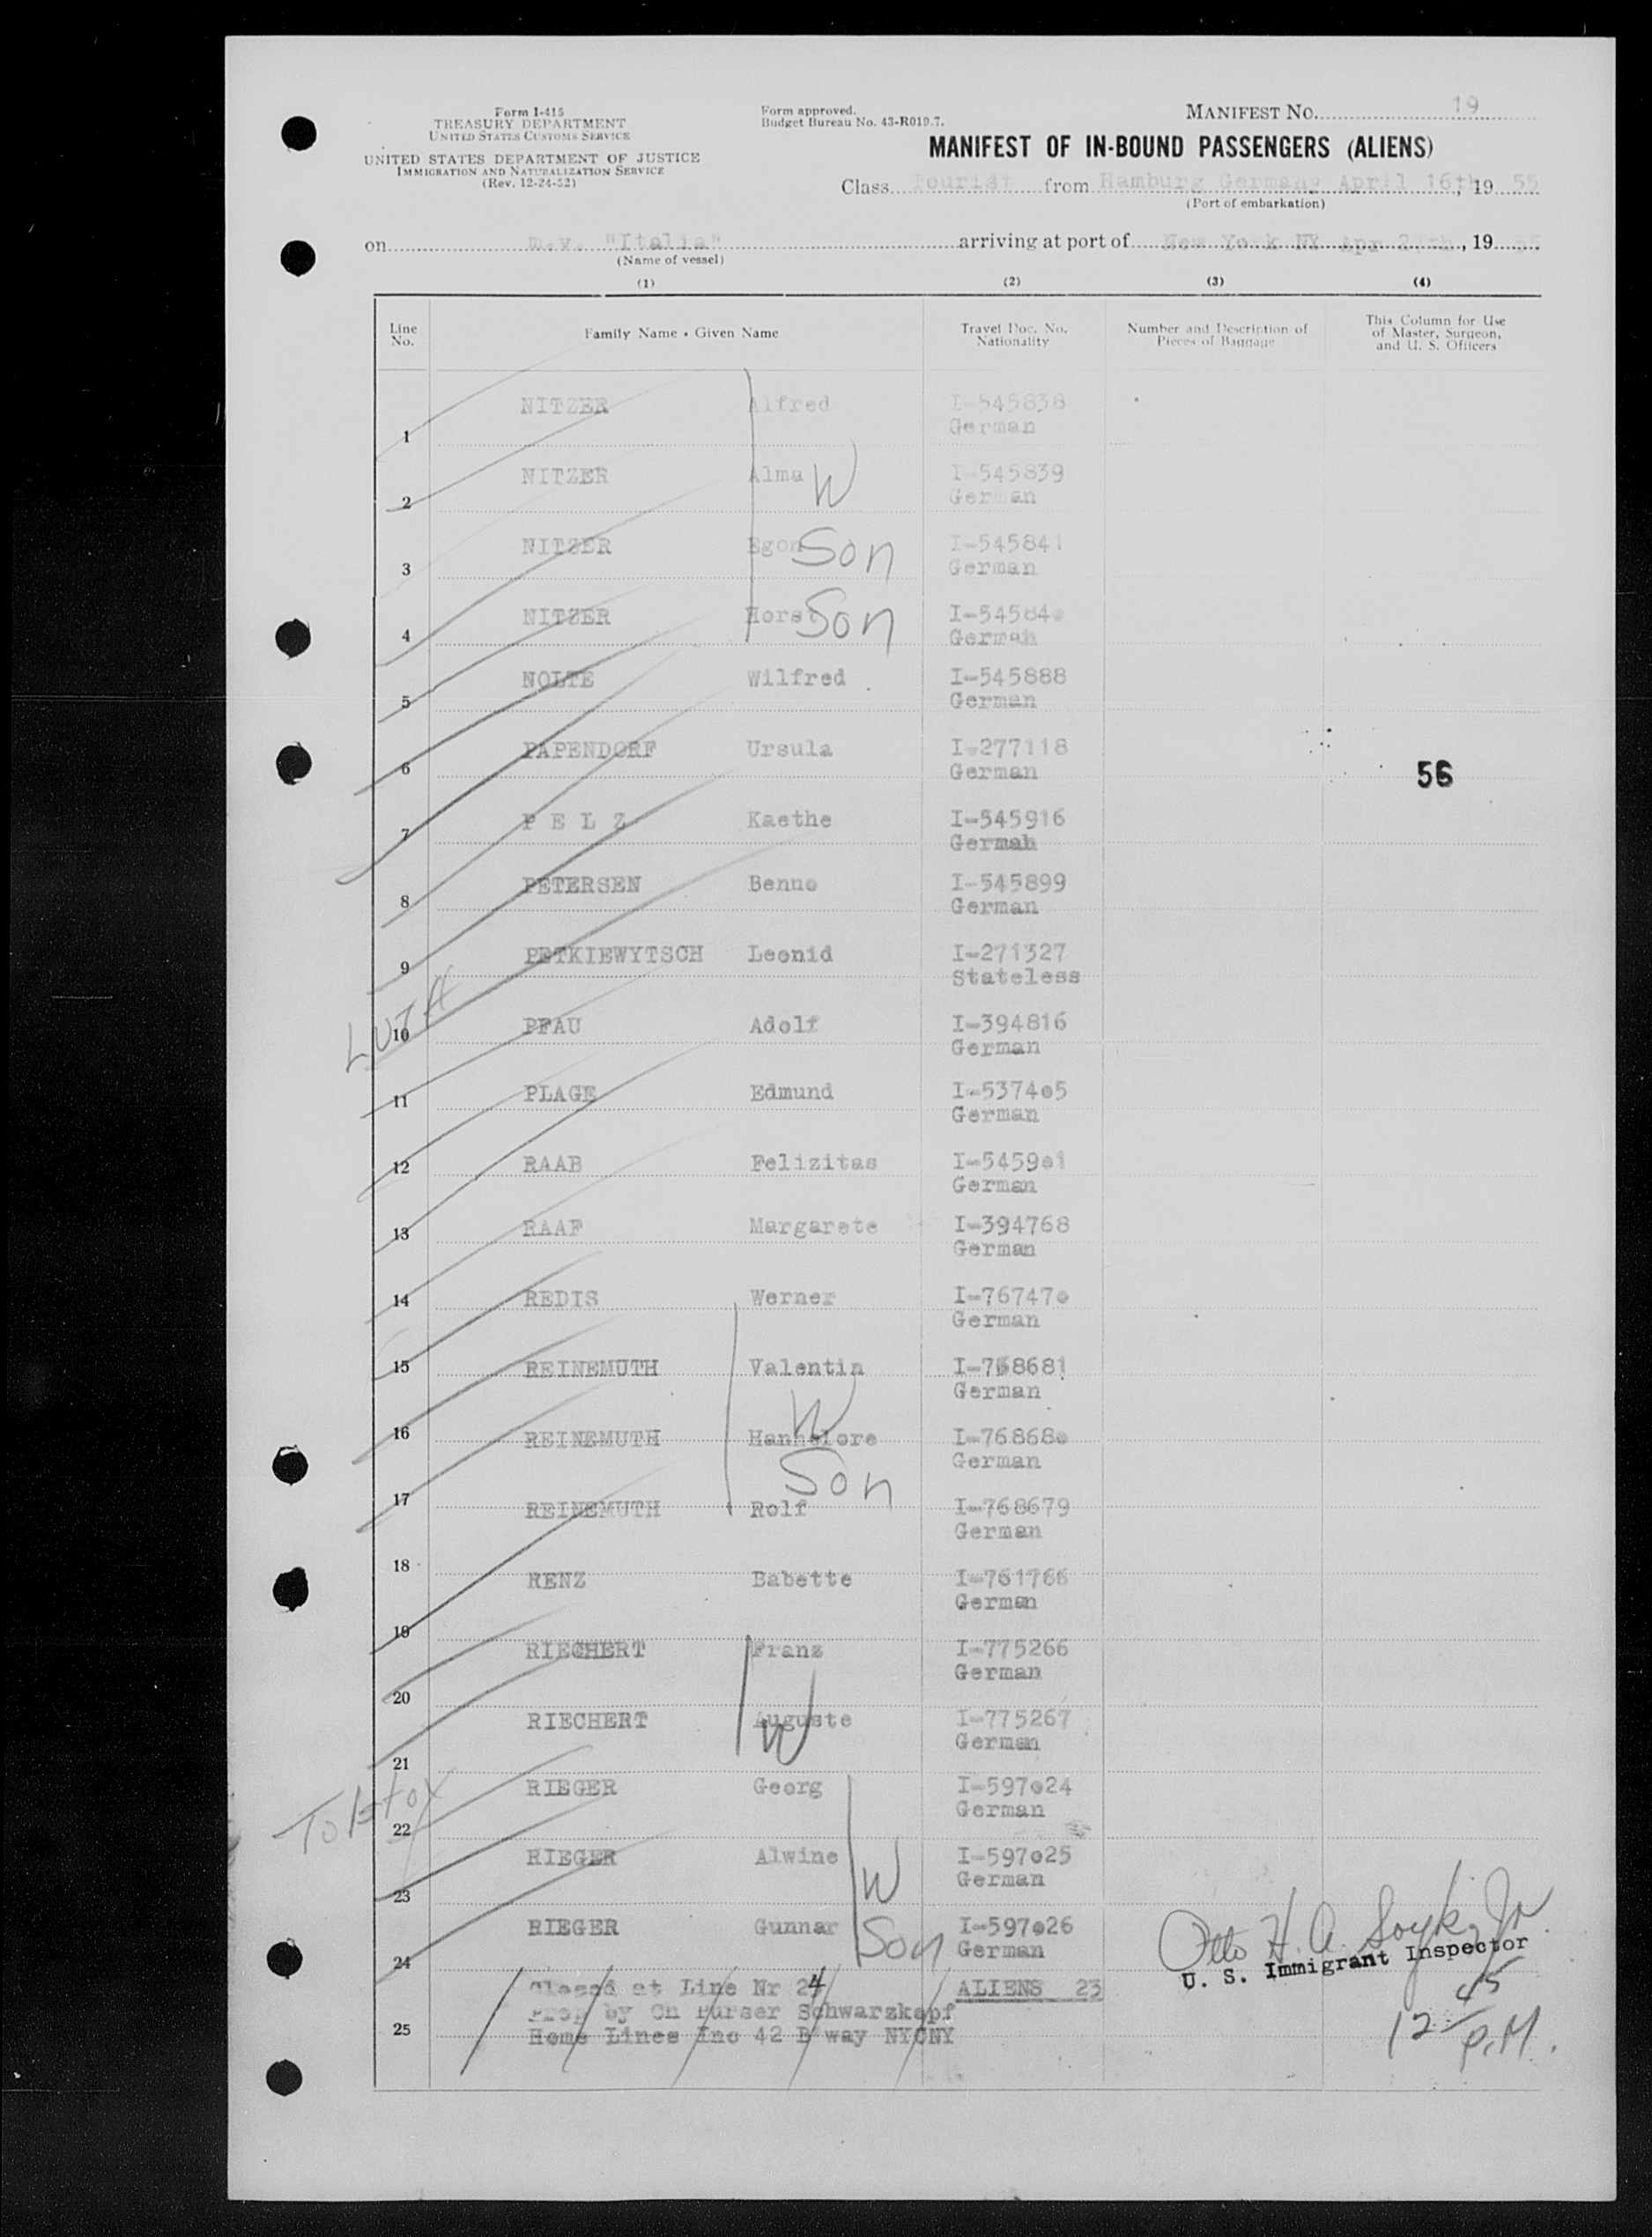 Form I-415
TREASURY DEPARTMENT
UNITED STATES CUSTOMS SERVICE
UNITED STATES DEPARTMENT OF JUSTICE
IMMIGRATION AND NATURALIZATION SERVICE
(Rev. 12-24-52)
Form approved.
Budget Bureau No. 43-R019.7.
MANIFEST NO. 19
MANIFEST OF IN-BOUND PASSENGERS (ALIENS)
Class Tourist from Hamburg Germany April 16th, 19 55
(Port of embarkation)
on m.v. "Italia" arriving at port of New York NY Apr , 19
(Name of vessel)
(1) (2) (3) (4)
Line No. Family Name - Given Name Travel Doc. No. Nationality Number and Description of Pieces of Baggage This Column for Use of Master, Surgeon, and U. S. Officers
1 NITZER Alfred I-545838
German
2 NITZER Alma W I-545839
German
3 NITZER Egon Son I-545841
German
4 NITZER Horst Son I-54584o
German
5 NOLTE Wilfred I-545888
German
6 PAPENDORF Ursula I-277118
German 56
7 P E L Z Kaethe I-545916
German
8 PETERSEN Benno I-545899
German
9 PETKIEWYTSCH Leonid I-271327
Stateless
LUTH
10 PFAU Adolf I-394816
German
11 PLAGE Edmund I-5374o5
German
12 RAAB Felizitas I-5459o1
German
13 RAAF Margarete I-394768
German
14 REDIS Werner I-76747o
German
15 REINEMUTH Valentin I-768681
German
16 REINEMUTH Hannelore W I-76868o
German
17 REINEMUTH Rolf Son I-768679
German
18 RENZ Babette I-761766
German
19 RIECHERT Franz I-775266
German
20 RIECHERT Auguste W I-775267
German
21 RIEGER Georg I-597o24
German
Tolstox
22 RIEGER Alwine W I-597o25
German
23 RIEGER Gunnar Son I-597o26
German
24 Closed at Line Nr 24 ALIENS 23
Prop by Ch Purser Schwarzkopf
25 Home Lines Inc 42 B'way NYCNY
Otto H. A. Jr
U. S. Immigrant Inspector
12 45 P.M.